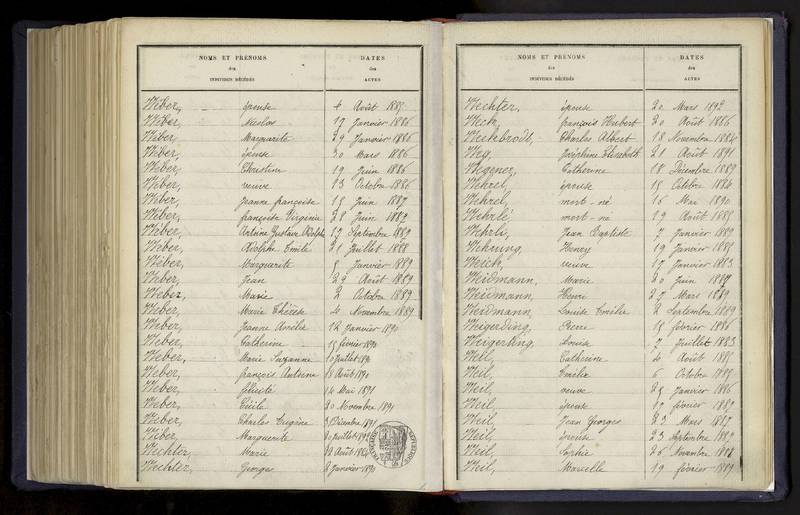 NOMS ET PRÉNOMS
des
INDIVIDUS DÉCÉDÉS
DATES
des
ACTES
Weber, épouse 4 Août 1885
Weber, Nicolas 17 Janvier 1886
Weber, Marguerite 29 Janvier 1886
Weber, épouse 30 Mars 1886
Weber, Christine 19 Juin 1886
Weber, veuve 13 Octobre 1886
Weber, Jeanne françoise 15 Juin 1887
Weber, françoise Virginie 28 Juin 1887
Weber, Antoine Gustave Adolphe 17 Septembre 1887
Weber, Adolphe Emile 21 Juillet 1888
Weber, Marguerite 8 Janvier 1889
Weber, Jean 29 Août 1889
Weber, Marie 2 Octobre 1889
Weber, Marie Thérèse 4 Novembre 1889
Weber, Jeanne Amélie 12 Janvier 1890
Weber, Catherine 15 février 1890
Weber, Marie Suzanne 10 Juillet 1890
Weber, françois Antoine 18 Août 1890
Weber, félicité 14 Mai 1891
Weber, Cécile 20 Novembre 1891
Weber, Charles Eugène 3 Décembre 1891
Weber, Marguerite 20 Juillet 1892
Wechter, Marie 22 Août 1884
Wechter, Georges 2 Janvier 1890
NOMS ET PRÉNOMS
des
INDIVIDUS DÉCÉDÉS
DATES
des
ACTES
Wechter, épouse 20 Mars 1892
Weck, françois Hubert 20 Août 1886
Weckbrodt, Charles Albert 18 Novembre 1884
Weg, Joséphine Elisabeth 21 Août 1891
Wegener, Catherine 18 Décembre 1889
Wehrel, épouse 15 Octobre 1884
Wehrel, mort-né 16 Mai 1890
Wehrlé, mort-né 19 Août 1885
Wehrli, Jean Baptiste 7 Janvier 1889
Wehrung, Henry 19 Janvier 1885
Weich, veuve 17 Janvier 1883
Weidmann, Marie 20 Juin 1887
Weidmann, Henri 27 Mars 1889
Weidmann, Louise Emilie 2 Septembre 1889
Weigerding, Pierre 15 février 1886
Weigerding, Louise 7 Juillet 1883
Weil, Catherine 4 Août 1885
Weil, Emélie 6 Octobre 1885
Weil, veuve 25 Janvier 1886
Weil, épouse 17 février 1887
Weil, Jean Georges 23 Mars 1887
Weil, épouse 23 Septembre 1887
Weil, Sophie 26 Novembre 1888
Weil, Marcelle 19 février 1889